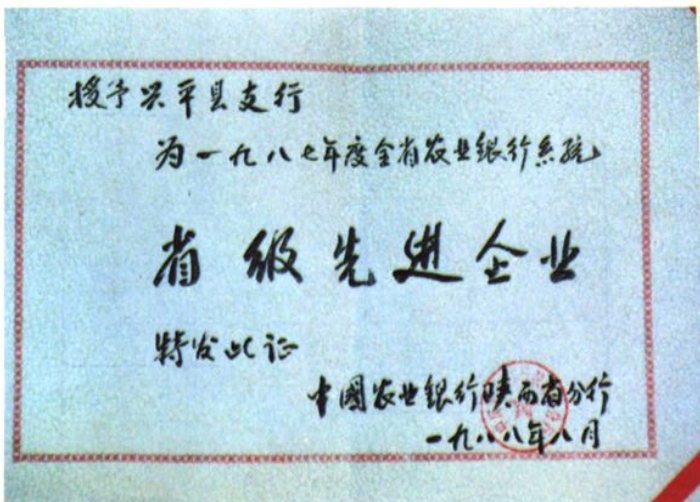 授予兴平县支行
为一九八七年度全省农业银行系统
省级先进企业
特发此证
中國农业银行陕西省分行
一九八八年八月